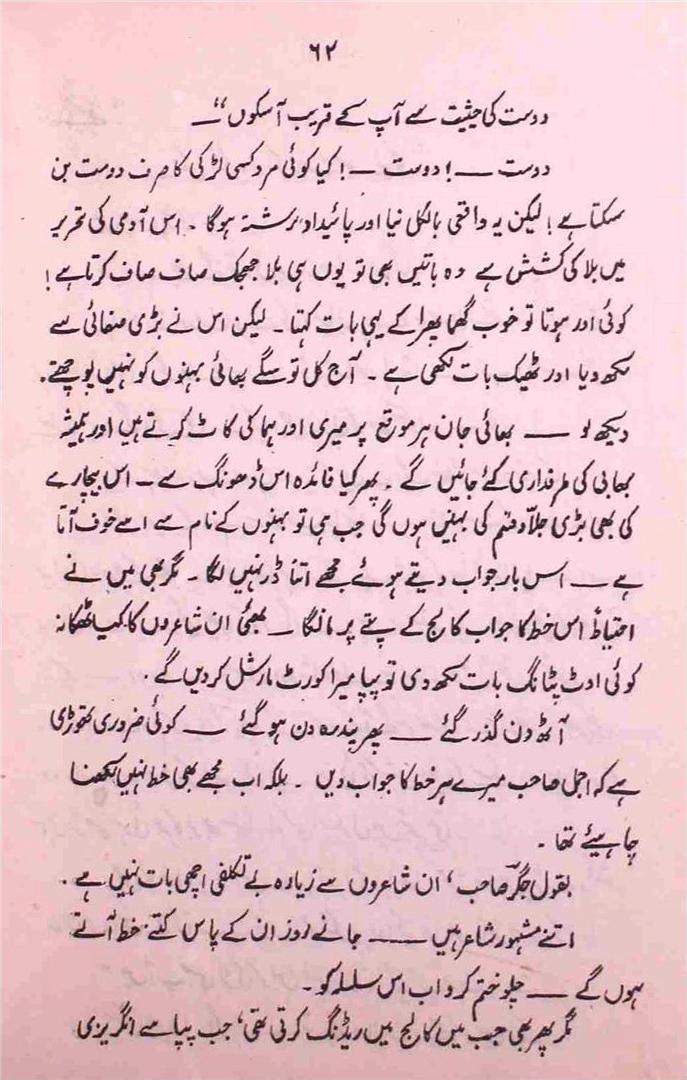 ۶۲
دوست کی حیثیت سے آپ کے قریب آسکوں"۔
دوست ــــ! دوست ــ! کیا کوئی مرد کسی لڑکی کا صرف دوست بن
سکتا ہے! لیکن یہ واقعی بالکل نیا اور پائیدار رشتہ ہوگا۔ اس آدمی کی تحریر
میں بلا کی کشش ہے وہ باتیں بھی تو یوں ہی بلا جھجک صاف صاف کرتا ہے!
کوئی اور ہوتا تو خوب گھما پھرا کے یہی بات کہتا۔ لیکن اس نے بڑی صفائی سے
لکھ دیا اور ٹھیک بات لکھی ہے۔ آج کل تو سگے بھائی بہنوں کو نہیں پوچھتے۔
دیکھ لو ــــ بھائی جان ہر موقع پر میری اور ہما کی کاٹ کرتے ہیں اور ہمیشہ
بھابی کی طرفداری کئے جائیں گے۔ پھر کیا فائدہ اس ڈھونگ سے ــ اس بیچارے
کی بھی بڑی جلاّد قسم کی بہنیں ہوں گی جب ہی تو بہنوں کے نام سے اسے خوف آتا
ہے ــ اس بار جواب دیتے ہوئے مجھے اتنا ڈر نہیں لگا۔ مگر بھی میں نے
احتیاطً اس خط کا جواب کالج کے پتے پر مانگا ــ بھئی ان شاعروں کا کیا ٹھکانہ
کوئی اوٹ پٹانگ بات لکھ دی تو پپا میرا کورٹ مارشل کردیں گے۔
آٹھ دن گذر گئے ــــ پھر پندرہ دن ہوگئے ــــ کوئی ضروری تھوڑی
ہے کہ اجمل صاحب میرے ہر خط کا جواب دیں ۔ بلکہ اب مجھے بھی خط نہیں لکھنا
چاہیئے تھا۔
بقول جگر صاحب' ان شاعروں سے زیادہ بے تکلفی اچھی بات نہیں ہے۔
اتنے مشہور شاعر ہیں ــــ جانے روز ان کے پاس کتنے خط آتے
ہوں گے ــــ چلو ختم کرو اب اس سلسلہ کو۔
مگر پھر بھی جب میں کالج میں ریڈنگ کرتی تھی' جب پپا سے انگریزی